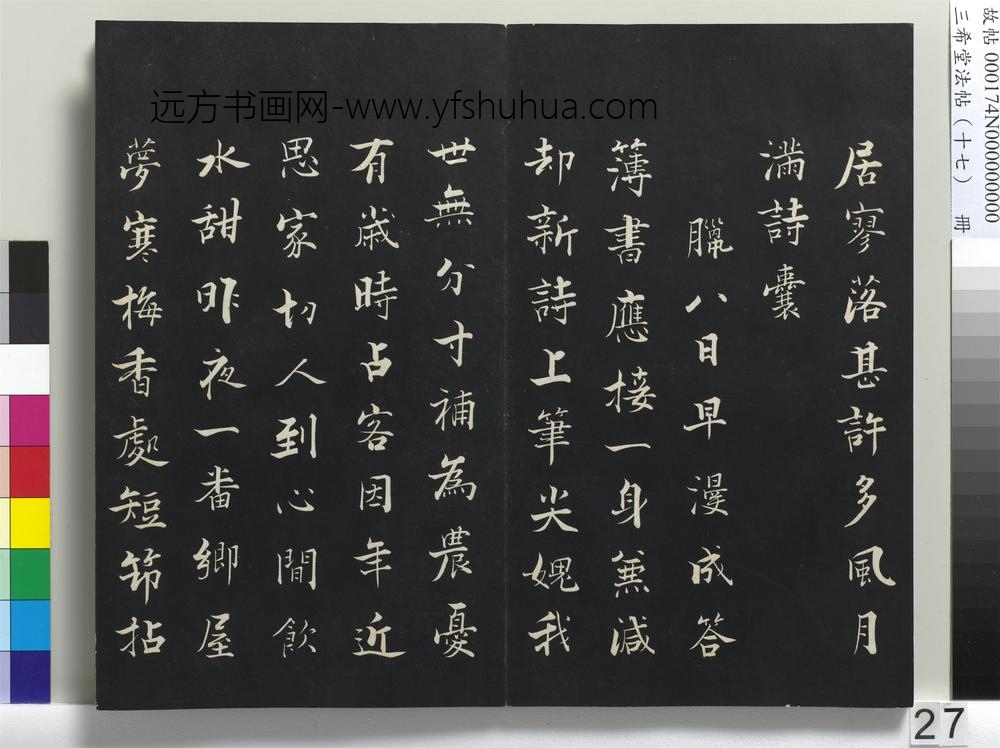 居寥落甚許多風月
滿詩囊
臘八日早漫成答
簿書應接一身兼減
却新詩上筆尖媿我
世無分寸補為農憂
有歲時占客因年近
思家切人到心閒飲
水甜昨夜一番鄉屋
夢寒梅香處短筇拈
远方书画网-www.yfshuhua.com
故帖000174N000000000
三希堂法帖(十七) 冊
27